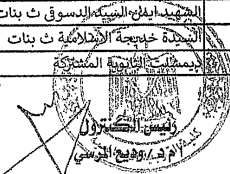 الشهيد ايمن السيد الدسوقى ث بنات
السيدة خديجة الاعلامية ث بنات
ديمشلت الثانوية المشتركة
رئيس الكنترول
ا م د / وديع المرسي